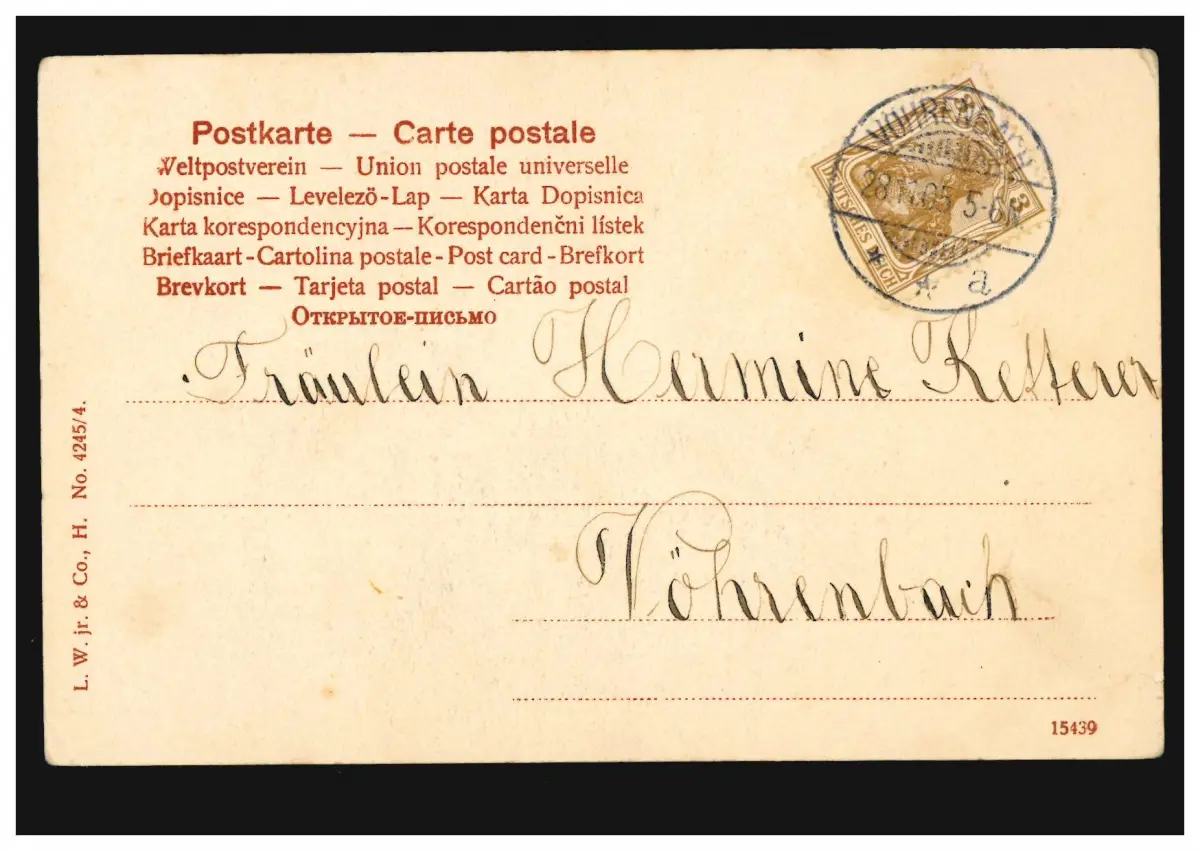 Postkarte — Carte postale
Weltpostverein — Union postale universelle
Dopisnice — Levelező-Lap — Karta Dopisnica
Karta korespondencyjna — Korespondenčni lístek
Briefkaart - Cartolina postale - Post card - Brefkort
Brevkort — Tarjeta postal — Cartão postal
Открытое-письмо
DEUTSCHES REICH
3
3
5-6N
a
Fräulein Hermine Ketterer
Vöhrenbach
L. W. jr. & Co., H. No. 4245/4.
15439